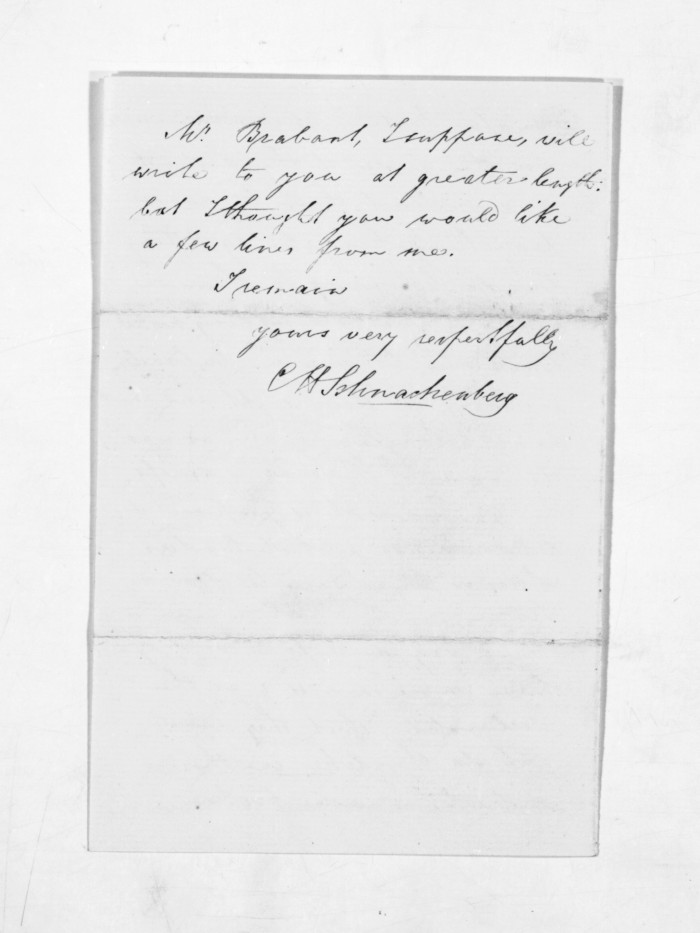 Mr. Brabant, I suppose, will
write to you at greater length:
but I thought you would like
a few lines from me.
I remain
yours very respectfully
C H Schnackenberg